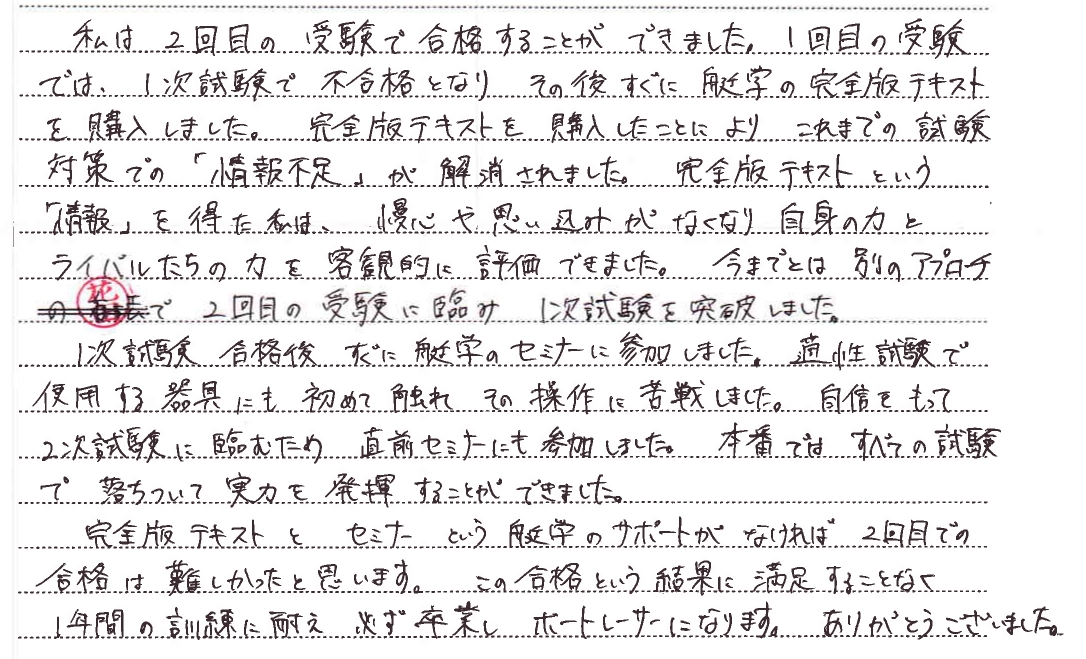 私は2回目の受験で合格することができました。1回目の受験
では、1次試験で不合格となりその後すぐに艇学の完全版テキスト
を購入しました。完全版テキストを購入したことによりこれまでの試験
対策での「情報不足」が解消されました。完全版テキストという
「情報」を得た私は、慢心や思い込みがなくなり自身の力と
ライバルたちの力を客観的に評価できました。今までとは別のアプローチ
で2回目の受験に臨み1次試験を突破しました。
1次試験合格後すぐに艇学のセミナーに参加しました。適性試験で
使用する器具にも初めて触れその操作に苦戦しました。自信をもって
2次試験に臨むため直前セミナーにも参加しました。本番ではすべての試験
で落ちついて実力を発揮することができました。
完全版テキストとセミナーという艇学のサポートがなければ2回目での
合格は難しかったと思います。この合格という結果に満足することなく
1年間の訓練に耐え必ず卒業しボートレーサーになります。ありがとうございました。